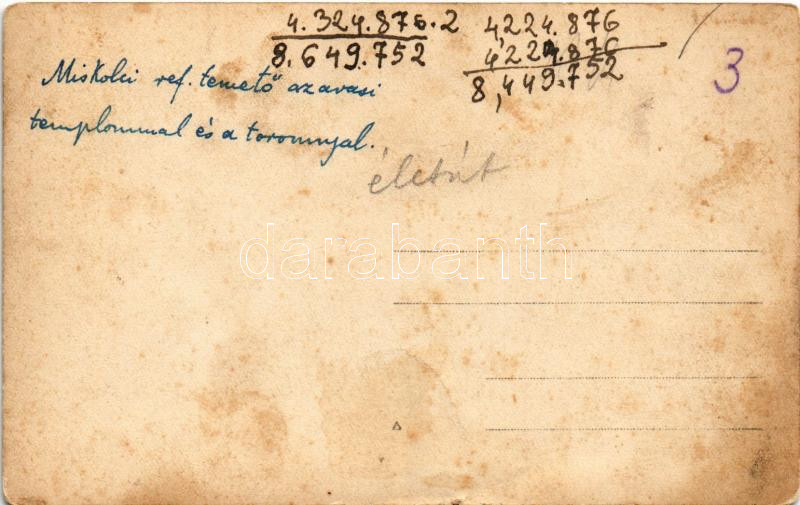 4.324.876.2
8.649.752
4,224.876
4,224.876
8,449.752
3
Miskolci ref. temető az avasi
templommal és a toronnyal.
életút
darabanth